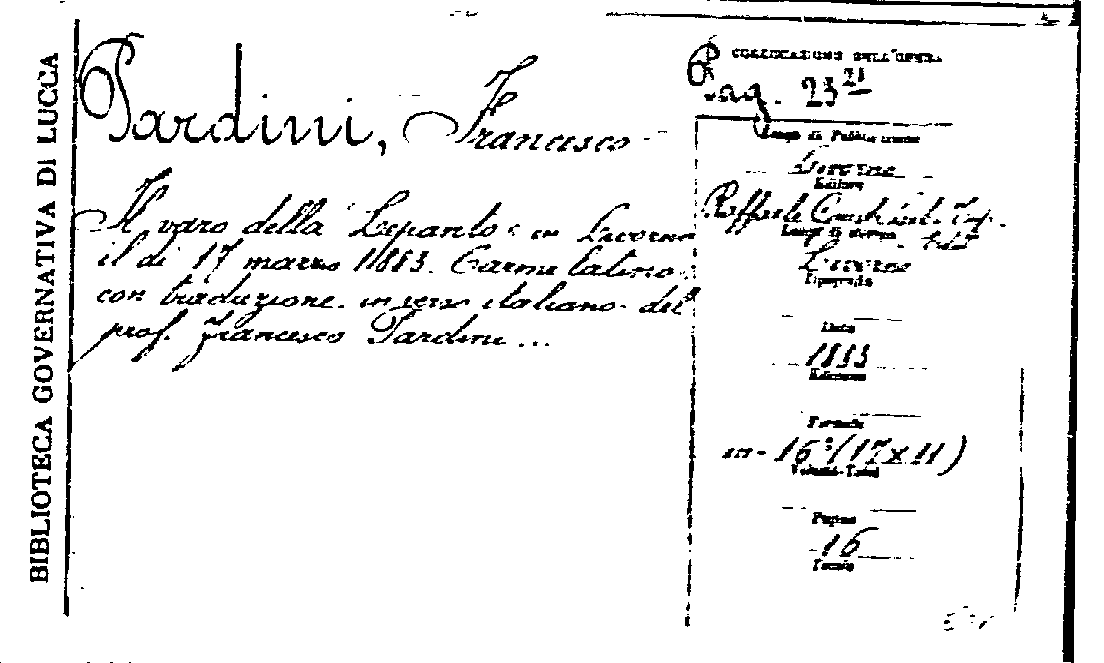 BIBLIOTECA GOVERNATIVA DI LUCCA
Pardini, Francesco
Il varo della Lepanto in Livorno
il dì 17 marzo 1883. Carme latino
con traduzione in verso italiano del
prof. Francesco Pardini ...
COLLOCAZIONE DELL'OPERA
Pag. 23 21
Luogo di Pubblicazione
Livorno
Editore
Raffaele Tip.
Luogo di stampa
Livorno
Tipografia
Data
1883
Edizione
Formato
in-16°(17x11)
Volumi-Tomi
Pagine
16
Tavole